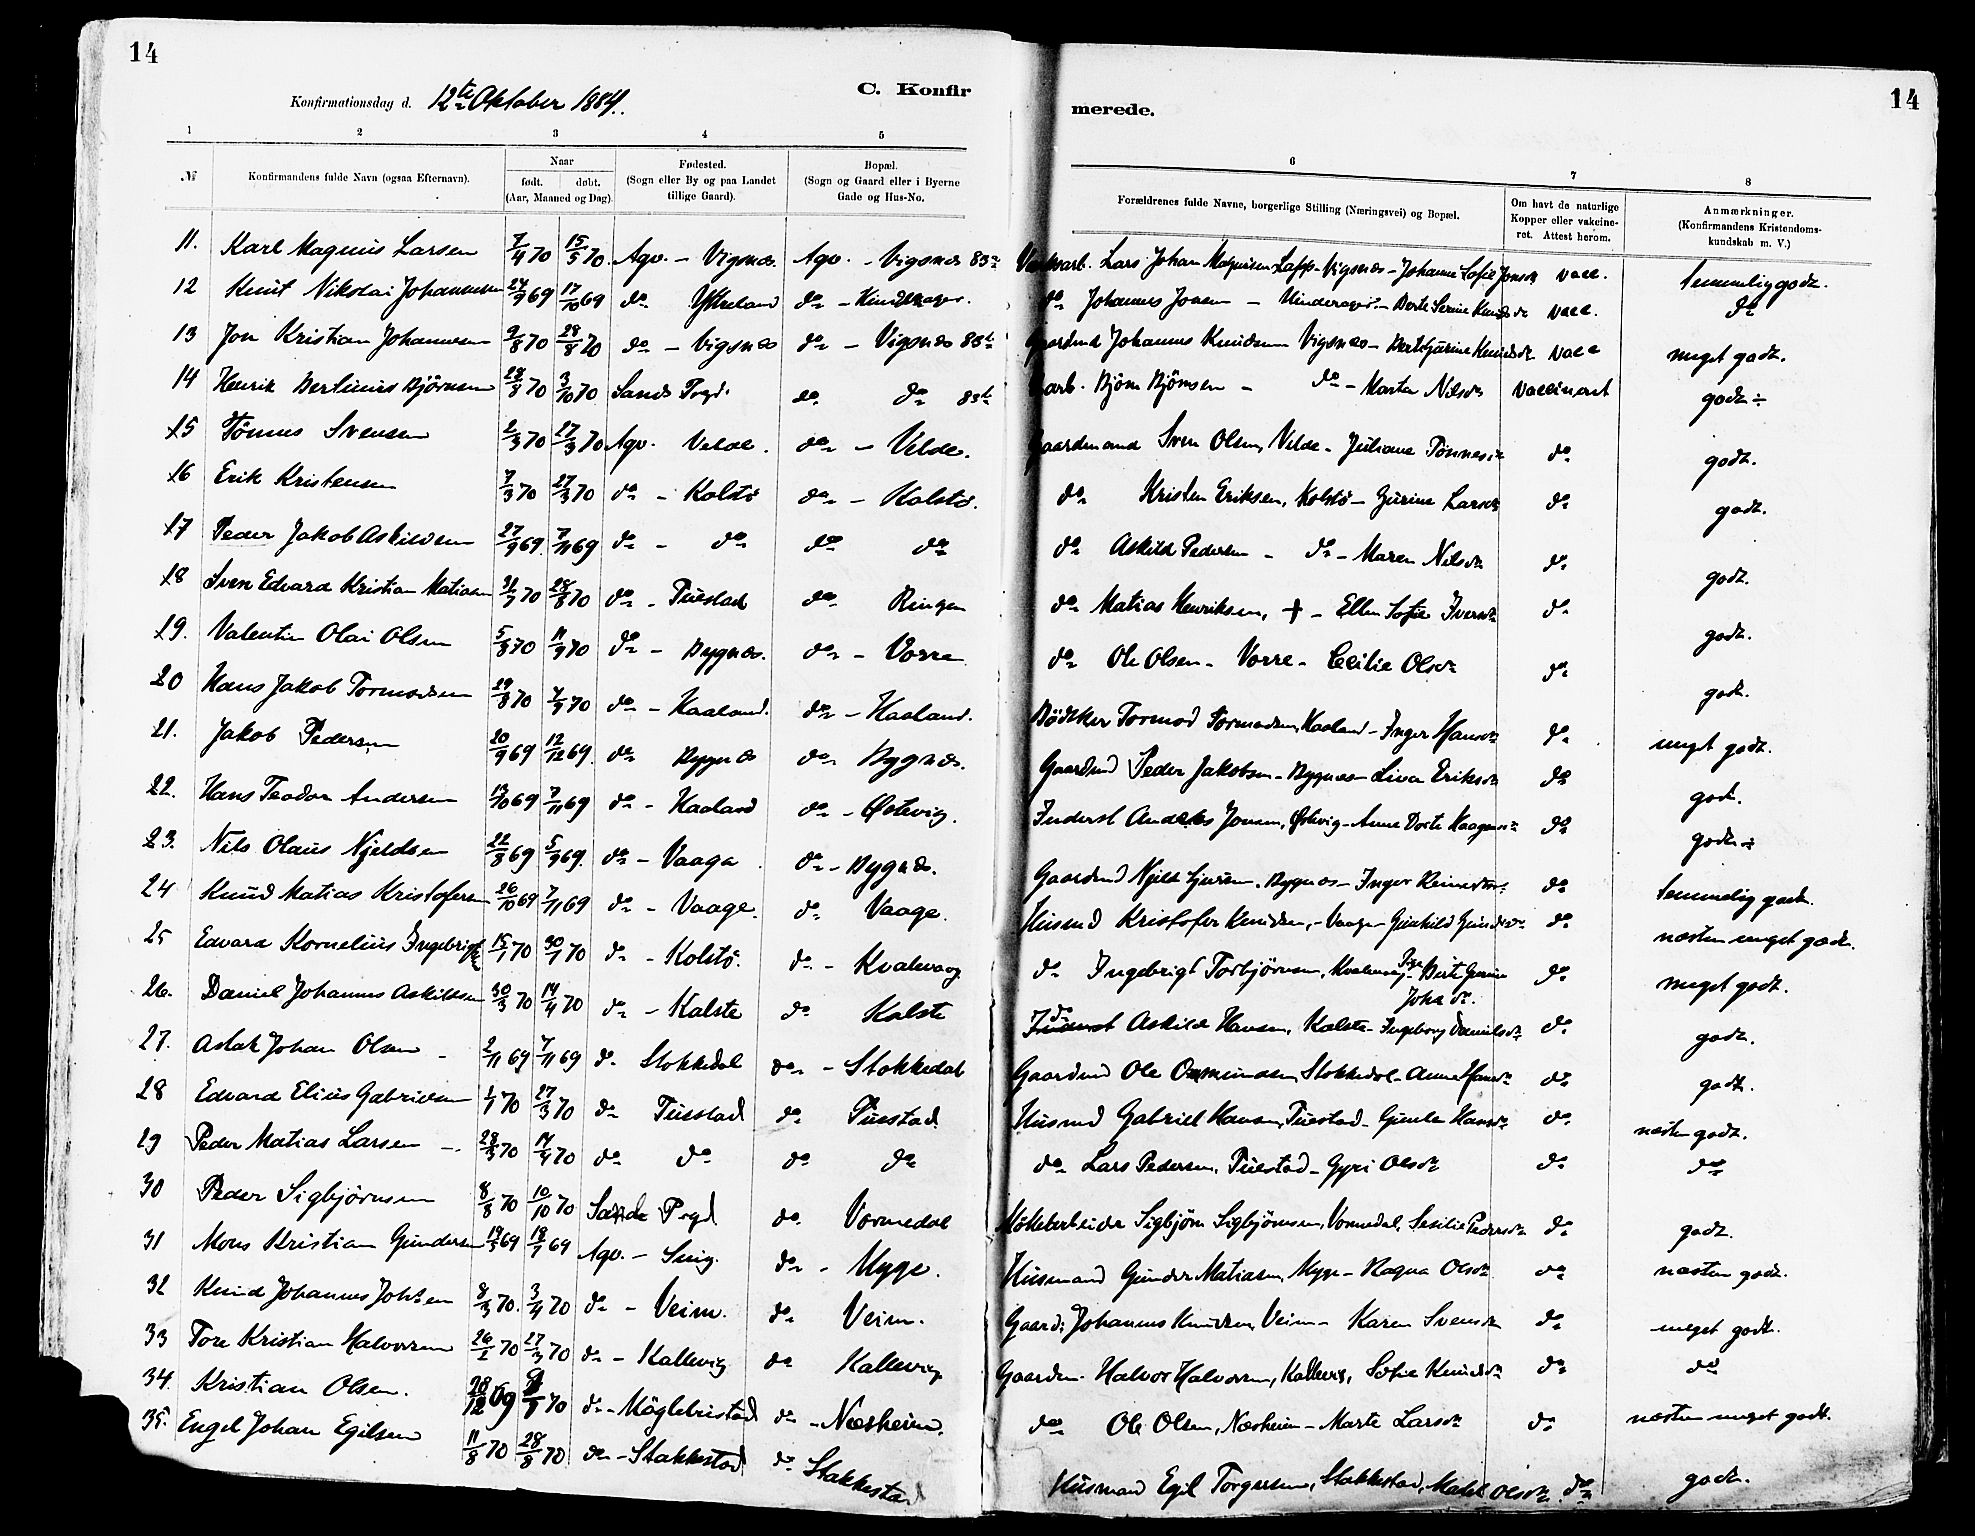 14
14
Konfirmationsdag d. 12te Oktober 1884.
C. Konfir
merede.
1 2 3 4 5 6 7 8
№ Konfirmandens fulde Navn (ogsaa Efternavn). Naar født. døbt. (Aar, Maaned og Dag). Fødested. (Sogn eller By og paa Landet tillige Gaard). Bopæl. (Sogn og Gaard eller i Byerne Gade og Hus-No. Forældrenes fulde Navne, borgerlige Stilling (Næringsvei) og Bopæl. Om havt de naturlige Kopper eller vakcineret. Attest herom. Anmærkninger. (Konfirmandens Kristendomskundskab m. V.)
11. Karl Magnus Larsen 7/4 70 15/5 70. Agv. - Vigsnæs. Agv. - Vigsnæs 83 Lars Johan Magnusen Vigsnæs - Johanne Sofie Jonsdr vacc. temmelig godt.
12 Knut Nikolai Johannesen 24/9 69 17/10 69 do do - Johannes Jonsen - Berte Serine vacc. do
13 Jon Kristian Johannesen 2/8 70 28/8 70 do - Vigsnæs do - Vigsnæs 88 Gaardmd Johannes Knudsen Vigsnæs - Knudsdr vacc meget godt.
14 Henrik Bertinius Bjørnsen 28/8 70 3/10 70 Sands Prgd. do do 83 arb. Bjørn Bjørnsen - do - Marta Nilsdr vaccineret godt ÷
15 Tönnes Svensen 2/3 70 27/3 70 Agv. Velde. do - Velde. Gaardmand Sven Olsen, Velde - Juliane Tönnesdr do godt.
16 Erik Kristensen 7/3 70 27/3 70 do - Kolstö do - Kolstö. do Kristen Eriksen, Kolstö - Gurine Larsdr do godt.
17 Peder Jakob Askildsen 27/9 69. 7/11 69 do - do do do do Askild Pedersen - do - Maren Nilsdr do godt.
18 Sven Edvard Kristian Matiasen 31/7 70 28/8 70 do - Tuestad do Ringen do Matias Henriksen, + - Ellen Sofie Iversdr do godt.
19. Valentin Olai Olsen 5/8 70 11/9 70 do - Bygnæs. do - Vorre do Ole Olsen - Vorre - Cecilie Olsdr do godt.
20 Hans Jakob Tormodsen 29/8 70 4/9 70 do - Haaland. do - Haaland. Bödtker Tormod Tormodsen, Haaland - Inger Hansdr do meget godt.
21. Jakob Pedersen 20/9 69 12/12 69. do Bygnæs do Bygnæs. Gaardmd Peder Jakobsen - Bygnæs - Liva Eriksdr do godt.
22. Hans Teodor Andersen 13/10 69 7/11 69 do - Haaland do - Østevig. Inderst Anders Jonsen, Østevig - Anne Dorte do godt ÷
23. Nils Olaus Kjeldsen 22/8 69 5/9 69. do - Vaage do - Bygnæs. Gaardmd Kjeld Bygnæs - Inger do temmelig godt.
24 Knud Matias Kristofersen 26/10 69 7/11 69 do - Vaage. do Vaage. Husmd Kristofer Knudsen, - Vaage - Gunhild do næsten meget godt.
25 Edvard Kornelius Ingebrigts 15/1 70 30/1 70 do - Kolstö. do - Kvalevaag do Ingebrigt Torbjørnsen, Kvalevaag - Berte Johs dr. do meget godt.
26. Daniel Johannes Askildsen 30/3 70 14/4 70 do - Kalstö do Kalstö do Inderst Askild Hansen, Kalstö - Ingeborg Danielsdr do godt.
27. Aslak Johan Olsen - 2/11 69 7/11 69 do Stokkedal do - Stokkedal Gaardmd Ole Osmundsen, Stokkedal - Anne Hansdr do godt.
28 Edvard Elius Gabrielsen 1/1 70 27/3 70 do Tuestad do Tuestad Husmd Gabriel Hansen, Tuestad - Gunla Hansdr do næsten godt.
29 Peder Matias Larsen - 28/3 70 14/4 70 do do do do do Lars Pedersen, Tuestad - Gyri Olsdr do do
30 Peder Sigbjørnsen 8/8 70 10/10 70 Sande Prgd do Vormedal Sigbjørn Sigbjørnsen, Vormedal, Sesilie Pedersdr do godt.
31 Mons Kristian Gundersen 14/5 69 18/7 69 Agv. - Snig. do - Myge. Husmand Gunder Matiasen, Myge - Ragna Olsdr do næsten godt.
32 Knud Johannes Johsen 8/3 70. 3/4 70 do - Veim. do Veim. Gaard: Johannes Knudsen, Veim - Karen Svensdr do meget godt.
33 Tore Kristian Halvorsen 26/2 70 27/3 70 do - Kallevig do Kallevig Gaardm. Halvor Halvorsen, Kallevig, Sofie Knudsdr do do
34. Kristian Olsen. 28/12 69 70 do - Möglebustad do - Næsheim. do Ole Olsen, Næsheim - Marte Larsdr do næsten meget godt.
35. Engel Johan Egilsen 11/8 70 28/8 70 do - Stakkestad do Stakkestad Husmand Egil Torgersen, Stakkestad, Malet Olsdr. do godt.